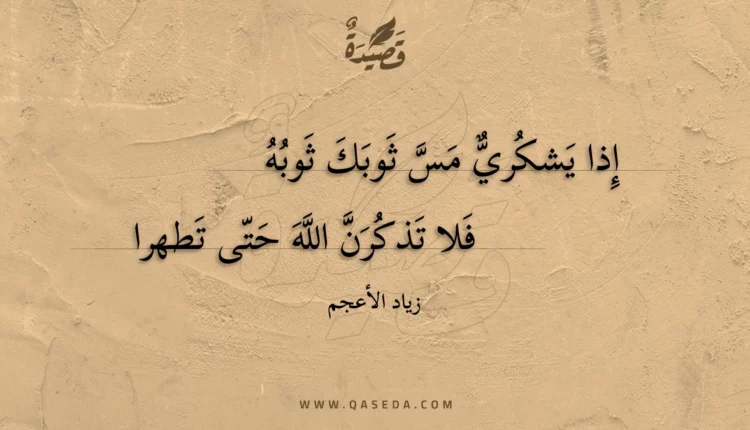 قَصِيدَةٌ
إِذا يَشكُرِيٌّ مَسَّ ثَوبَكَ ثَوبُهُ
فَلا تَذكُرَنَّ اللَّهَ حَتّى تَطهرا
زياد الأعجم
WWW.QASEDA.COM